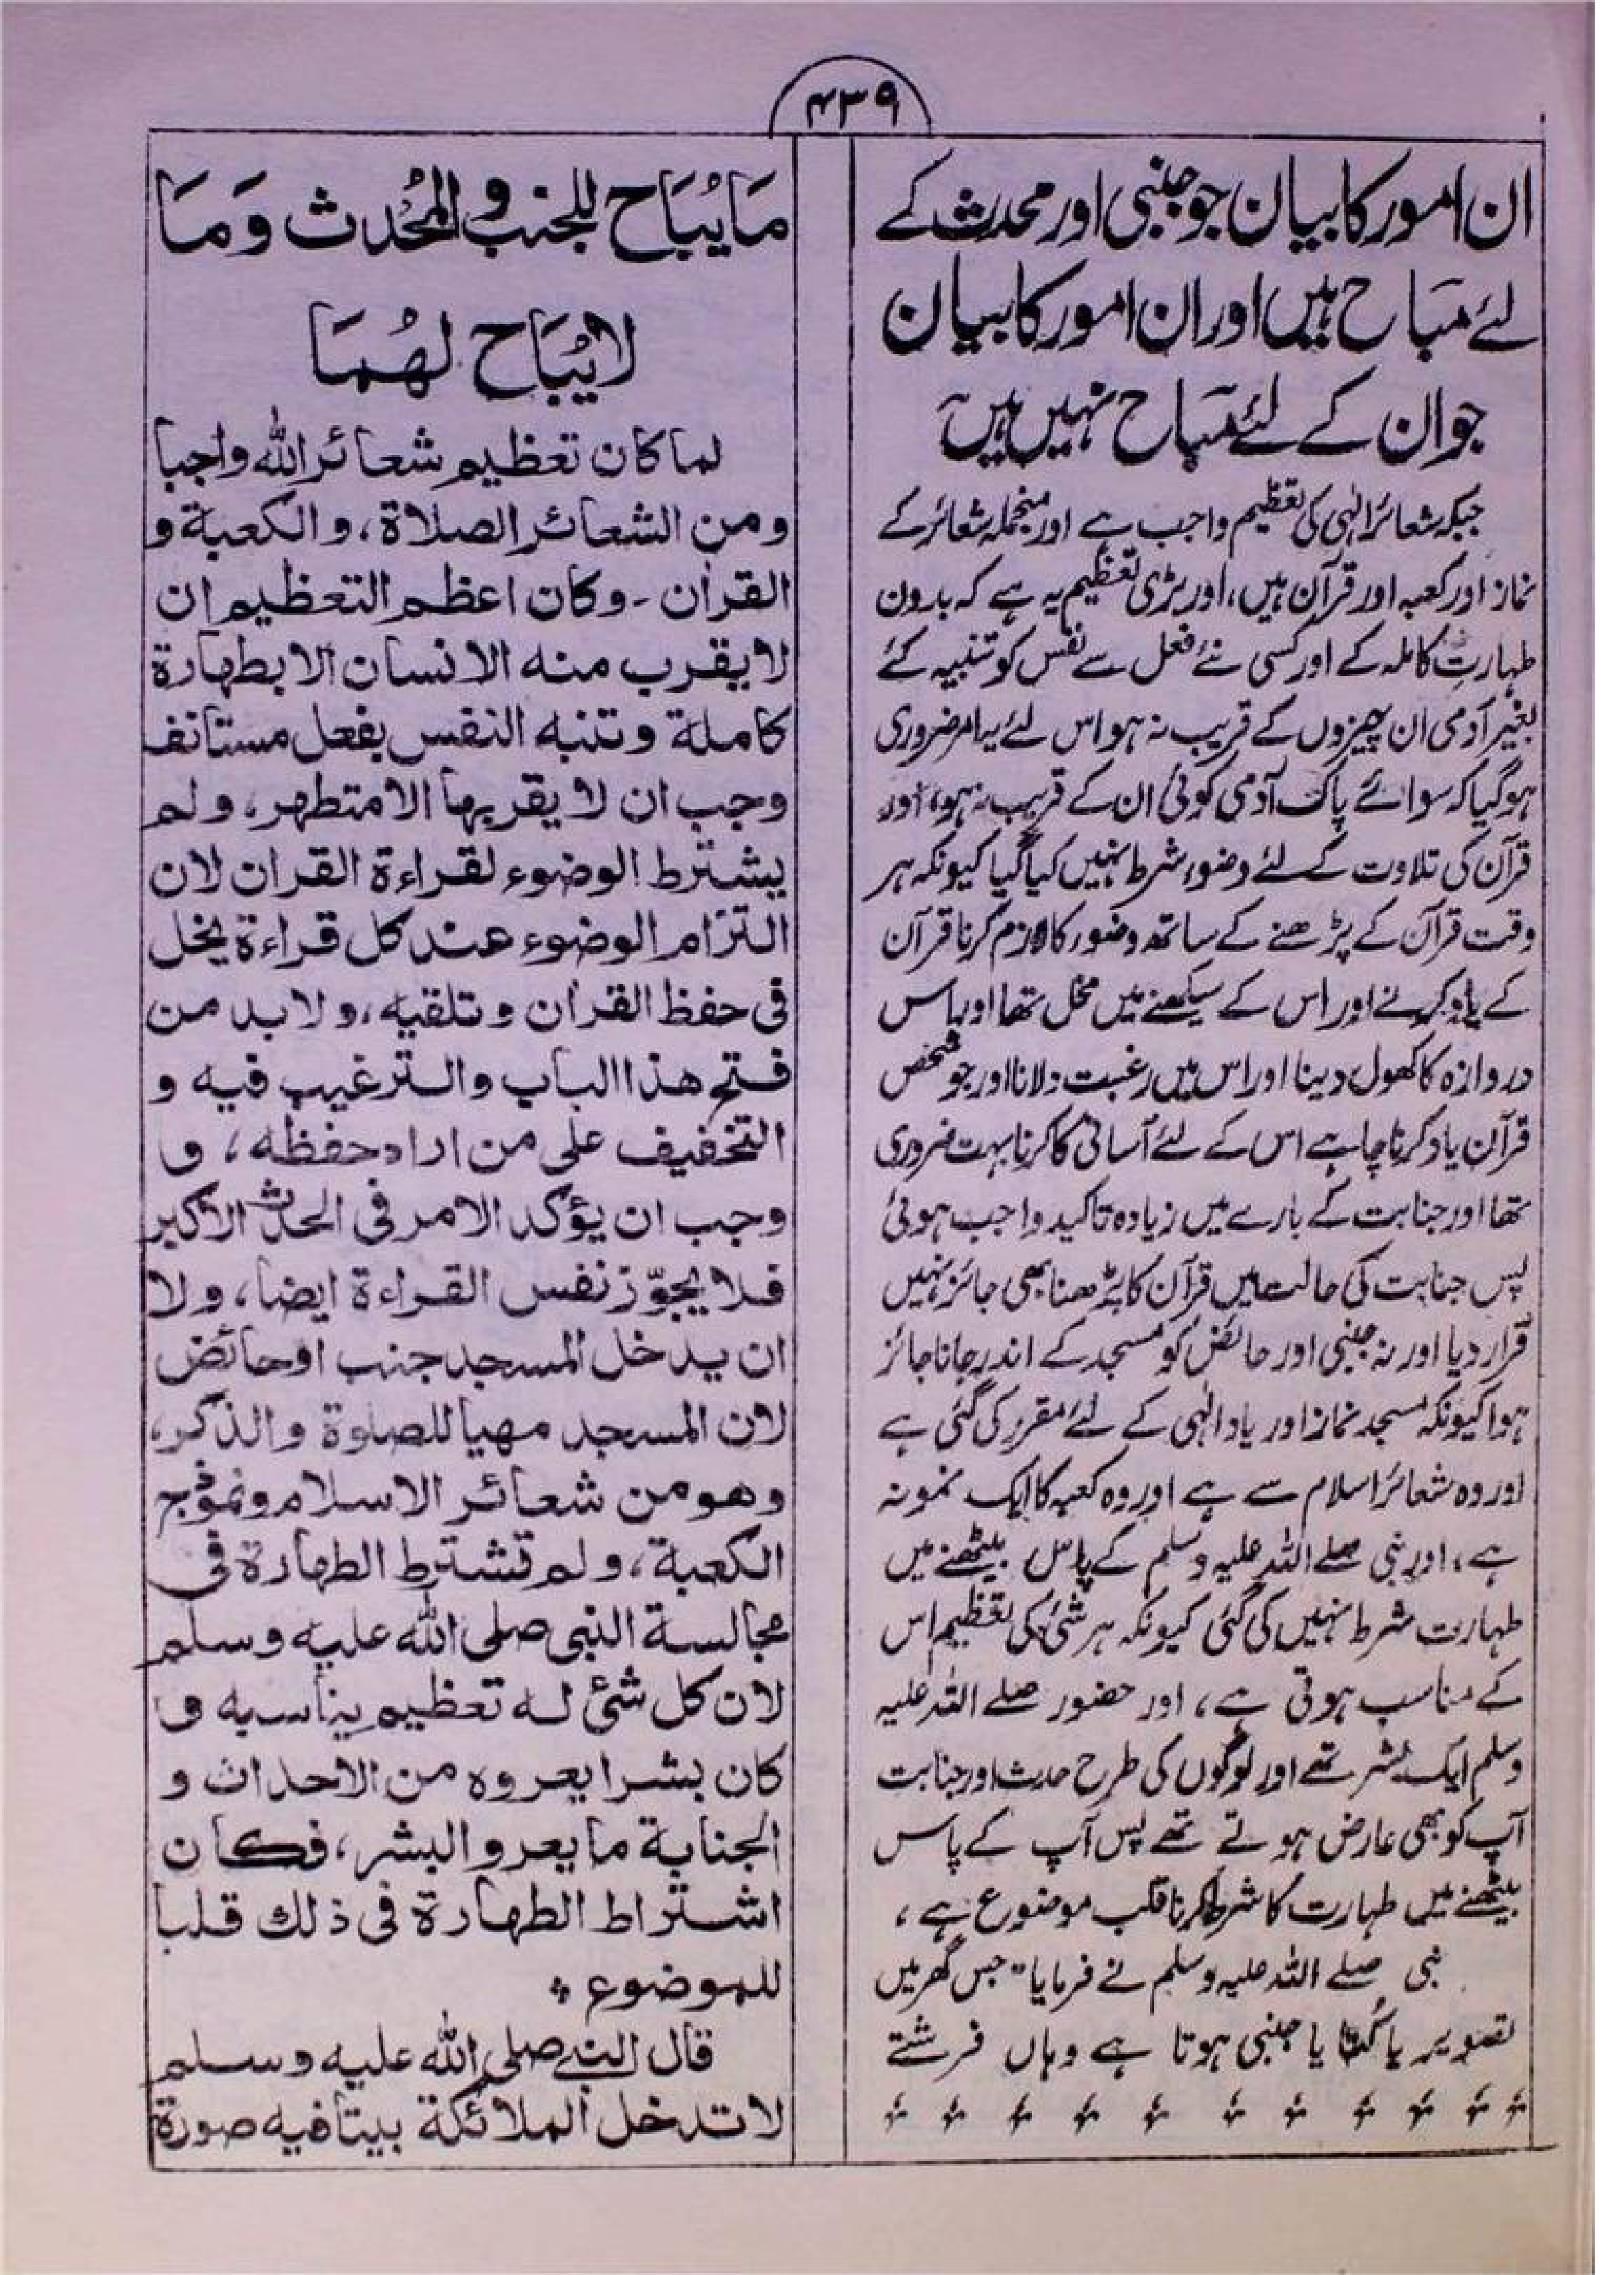 ۴۳۹
ان امور کا بیان جو جنبی اور محدث کے
لئے مباح ہیں اور ان امور کا بیان
جو ان کے لئے مباح نہیں ہیں
جبکہ شعائر الٰہی کی تعظیم واجب ہے اور منجملہ شعائر کے
نماز اور کعبہ اور قرآن ہیں، اور بڑی تعظیم یہ ہے کہ بدون
طہارت کاملہ کے اور کسی نئے فعل سے نفس کو تنبیہ کے
بغیر آدمی ان چیزوں کے قریب نہ ہو اس لئے یہ امر ضروری
ہو گیا کہ سوائے پاک آدمی کوئی ان کے قریب نہ ہو، اور
قرآن کی تلاوت کے لئے وضوء شرط نہیں کیا گیا کیونکہ ہر
وقت قرآن کے پڑھنے کے ساتھ وضور کا لازم کرنا قرآن
کے یاد کرنے اور اس کے سیکھنے میں مخل تھا اور اس
دروازہ کا کھول دینا اور اس میں رغبت دلانا اور جو شخص
قرآن یاد کرنا چاہے اس کے لئے آسانی کا کرنا بہت ضروری
تھا اور جنابت کے بارے میں زیادہ تاکید واجب ہوئی
پس جنابت کی حالت میں قرآن کا پڑھنا بھی جائز نہیں
قرار دیا اور نہ جنبی اور حائض کو مسجد کے اندر جانا جائز
ہوا کیونکہ مسجد نماز اور یاد الٰہی کے لئے مقرر کی گئی ہے
اور وہ شعائر اسلام سے ہے اور وہ کعبہ کا ایک نمونہ
ہے، اور نبی صلے اللہ علیہ وسلم کے پاس بیٹھنے میں
طہارت شرط نہیں کی گئی کیونکہ ہر شئ کی تعظیم اس
کے مناسب ہوتی ہے، اور حضور صلے اللہ علیہ
وسلم ایک بشر تھے اور لوگوں کی طرح حدث اور جنابت
آپ کو بھی عارض ہوتے تھے پس آپ کے پاس
بیٹھنے میں طہارت کا شرط کرنا قلب موضوع ہے،
نبی صلے اللہ علیہ وسلم نے فرمایا "جس گھر میں
تصویر یا کُتا یا جنبی ہوتا ہے وہاں فرشتے
مَا يُبَاح للجنب و المُحْدث وَ مَا
لا يُبَاح لهُمَا
لما كان تعظيم شعائر الله واجبا
ومن الشعائر الصلاة، والكعبة و
القرآن - وكان اعظم التعظيم ان
لا يقرب منه الانسان الا بطهارة
كاملة وتنبه النفس بفعل مستانف
وجب ان لا يقربها الا متطهر، ولم
يشترط الوضوء لقراءة القران لان
التزام الوضوء عند كل قراءة يخل
فى حفظ القران وتلقيه، ولا بد من
فتح هذا الباب والترغيب فيه و
التخفيف على من اراد حفظه، و
وجب ان يؤكد الامر فى الحدث الاكبر
فلا يجوّز نفس القراءة ايضا، ولا
ان يدخل المسجد جنب او حائض
لان المسجد مهيا للصلوة والذكر،
وهو من شعائر الاسلام ونموذج
الكعبة، ولم تشترط الطهارة فى
مجالسة النبى صلى الله عليه وسلم
لان كل شئ له تعظيم يناسبه و
كان بشرا يعروه من الاحداث و
الجنابة ما يعرو البشر، فكان
اشتراط الطهارة فى ذلك قلبا
للموضوع ؞
قال النبى صلى الله عليه وسلم
لا تدخل الملائكة بيتا فيه صورة